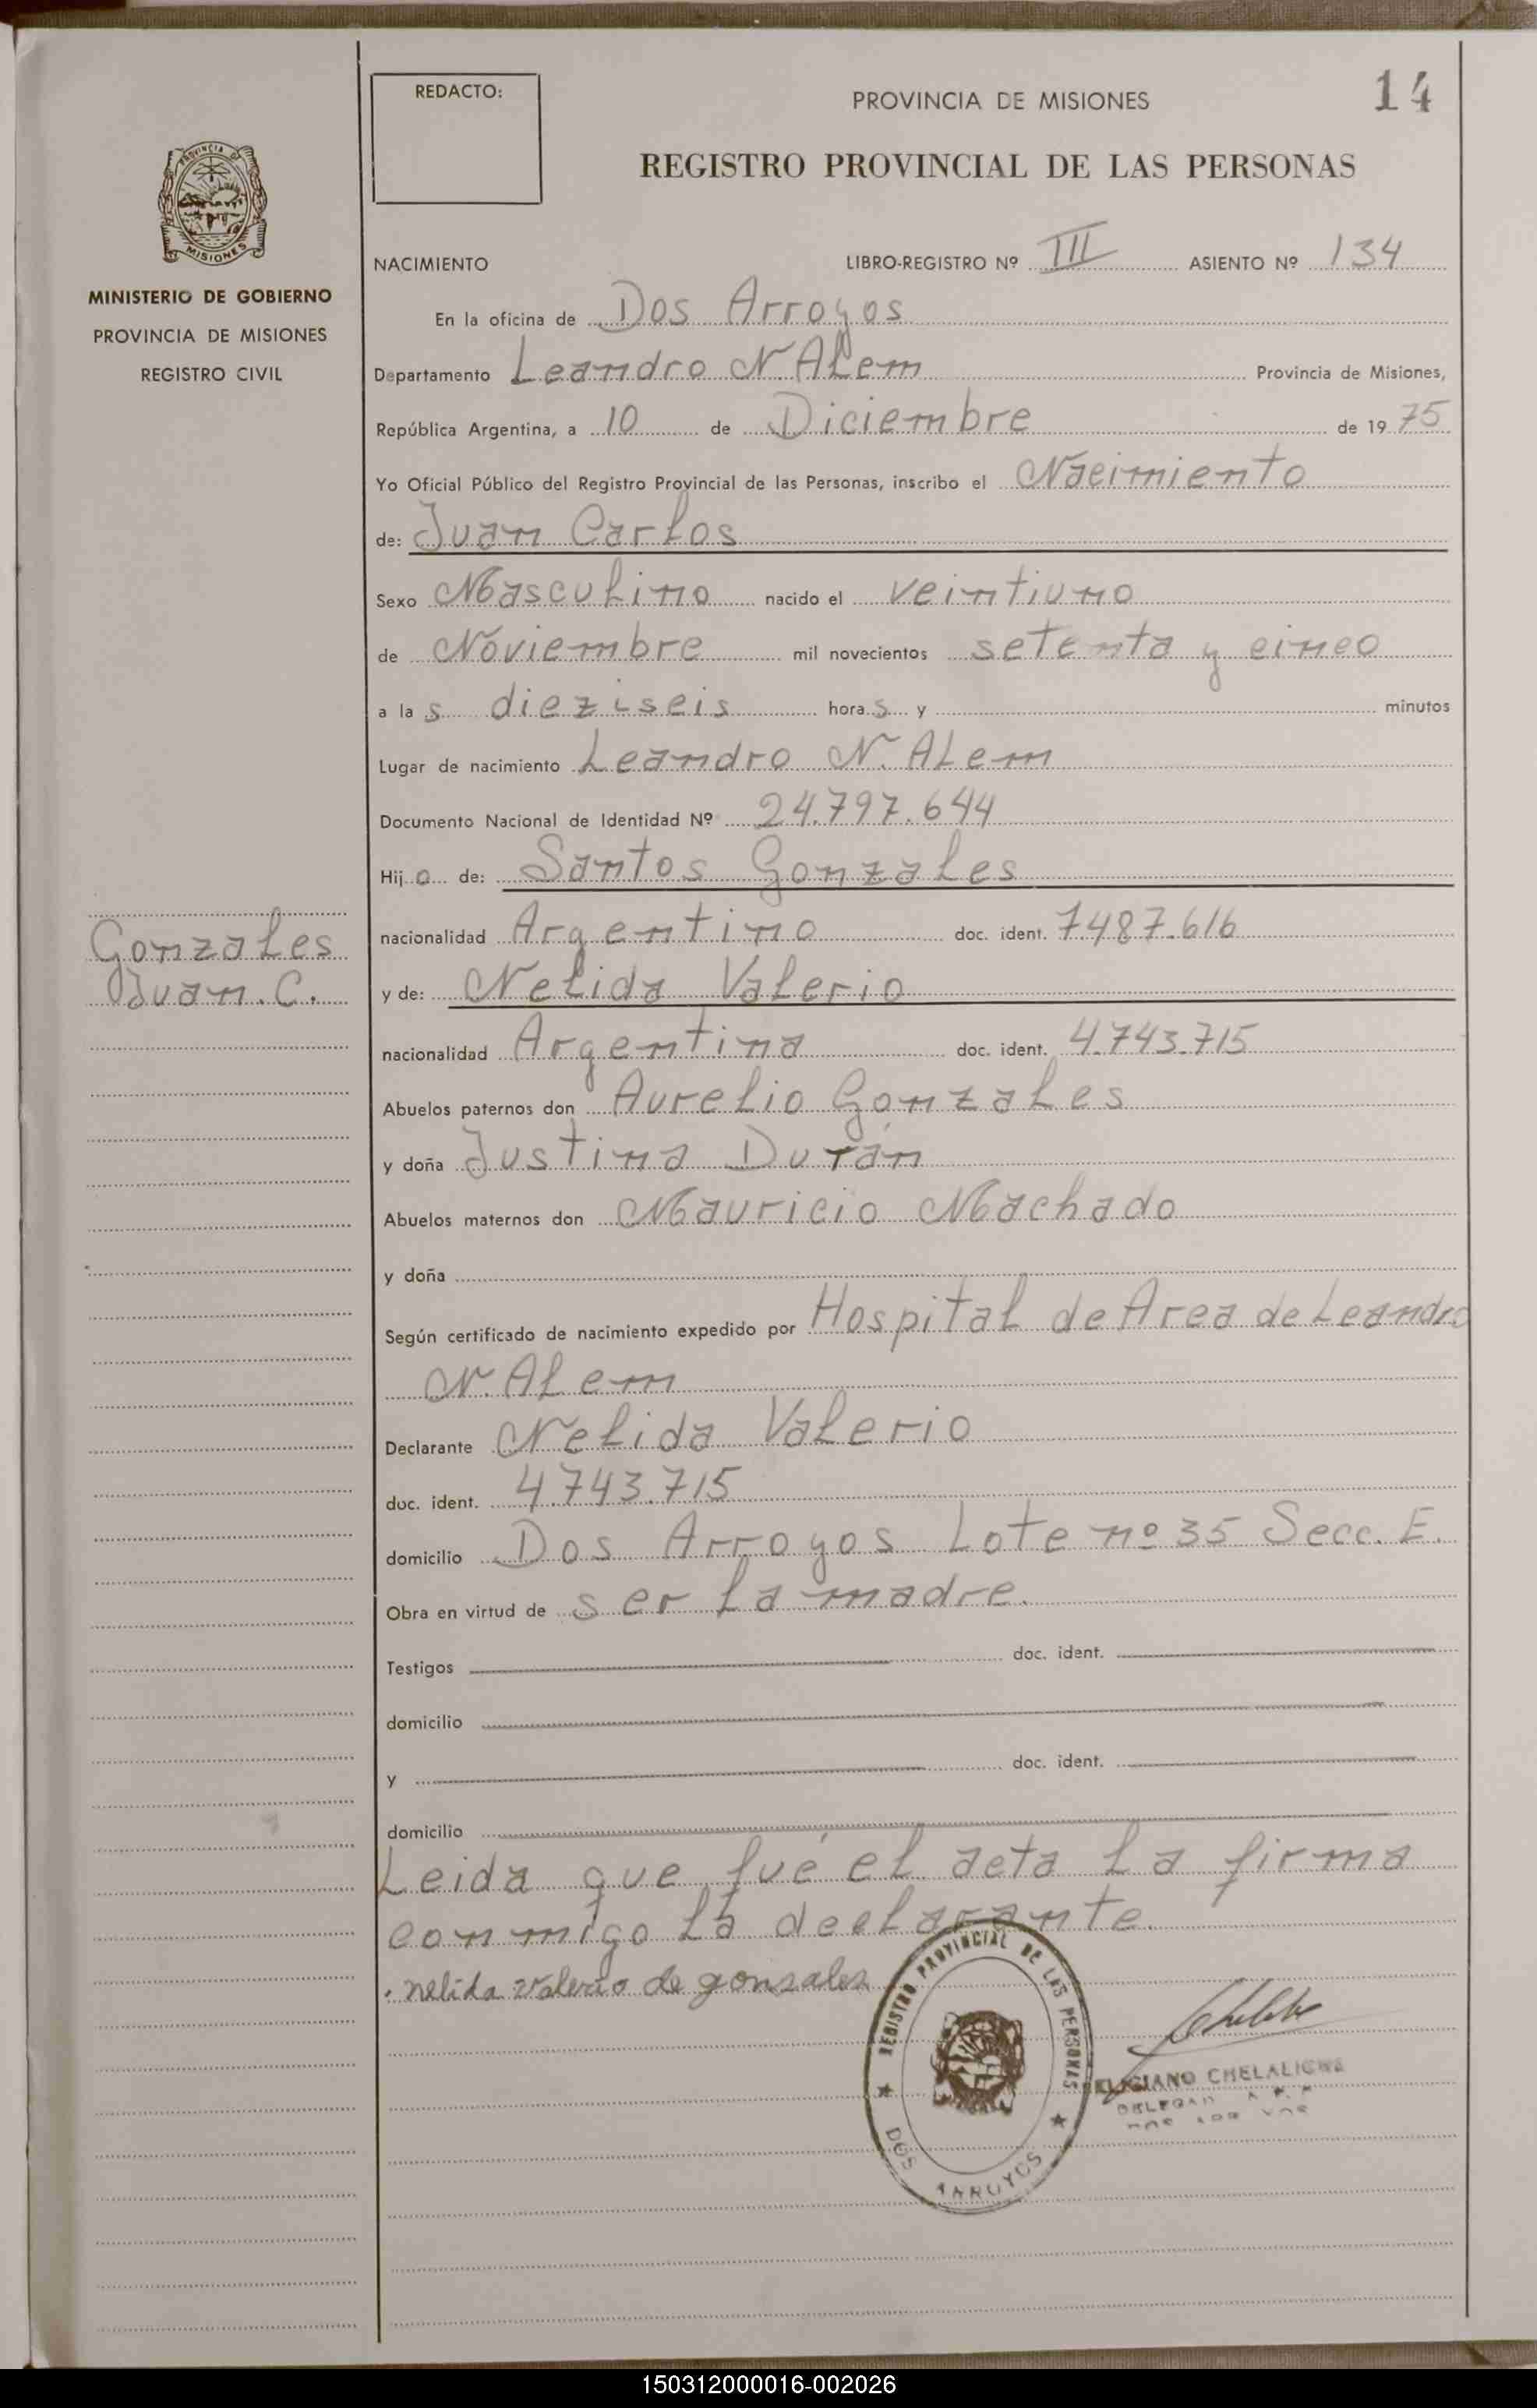 REDACTO:
PROVINCIA DE MISIONES
14
REGISTRO PROVINCIAL DE LAS PERSONAS
PROVINCIA DE
MISIONES
MINISTERIO DE GOBIERNO
PROVINCIA DE MISIONES
REGISTRO CIVIL
NACIMIENTO
LIBRO-REGISTRO Nº III ASIENTO Nº 134
En la oficina de Dos Arroyos
Departamento Leandro N. Alem Provincia de Misiones,
República Argentina, a 10 de Diciembre de 1975
Yo Oficial Público del Registro Provincial de las Personas, inscribo el Nacimiento
de: Juan Carlos
Sexo Masculino nacido el veintiuno
de Noviembre mil novecientos setenta y cinco
a las dieziseis horas y minutos
Lugar de nacimiento Leandro N. Alem
Documento Nacional de Identidad Nº 24.797.644
Hijo de: Santos Gonzales
nacionalidad Argentino doc. ident. 7487.616
Gonzales
Juan. C.
y de: Nelida Valerio
nacionalidad Argentina doc. ident. 4.743.715
Abuelos paternos don Aurelio Gonzales
y doña Justina Durán
Abuelos maternos don Mauricio Machado
y doña
Según certificado de nacimiento expedido por Hospital de Area de Leandro
N. Alem
Declarante Nelida Valerio
doc. ident. 4.743.715
domicilio Dos Arroyos Lote nº 35 Secc. E.
Obra en virtud de ser la madre.
Testigos doc. ident.
domicilio
y doc. ident.
domicilio
Leida que fué el acta la firma
conmigo la declarante.
nelida valerio de gonsalez
REGISTRO PROVINCIAL DE LAS PERSONAS
DOS ARROYOS
CHELALICHE
150312000016-002026